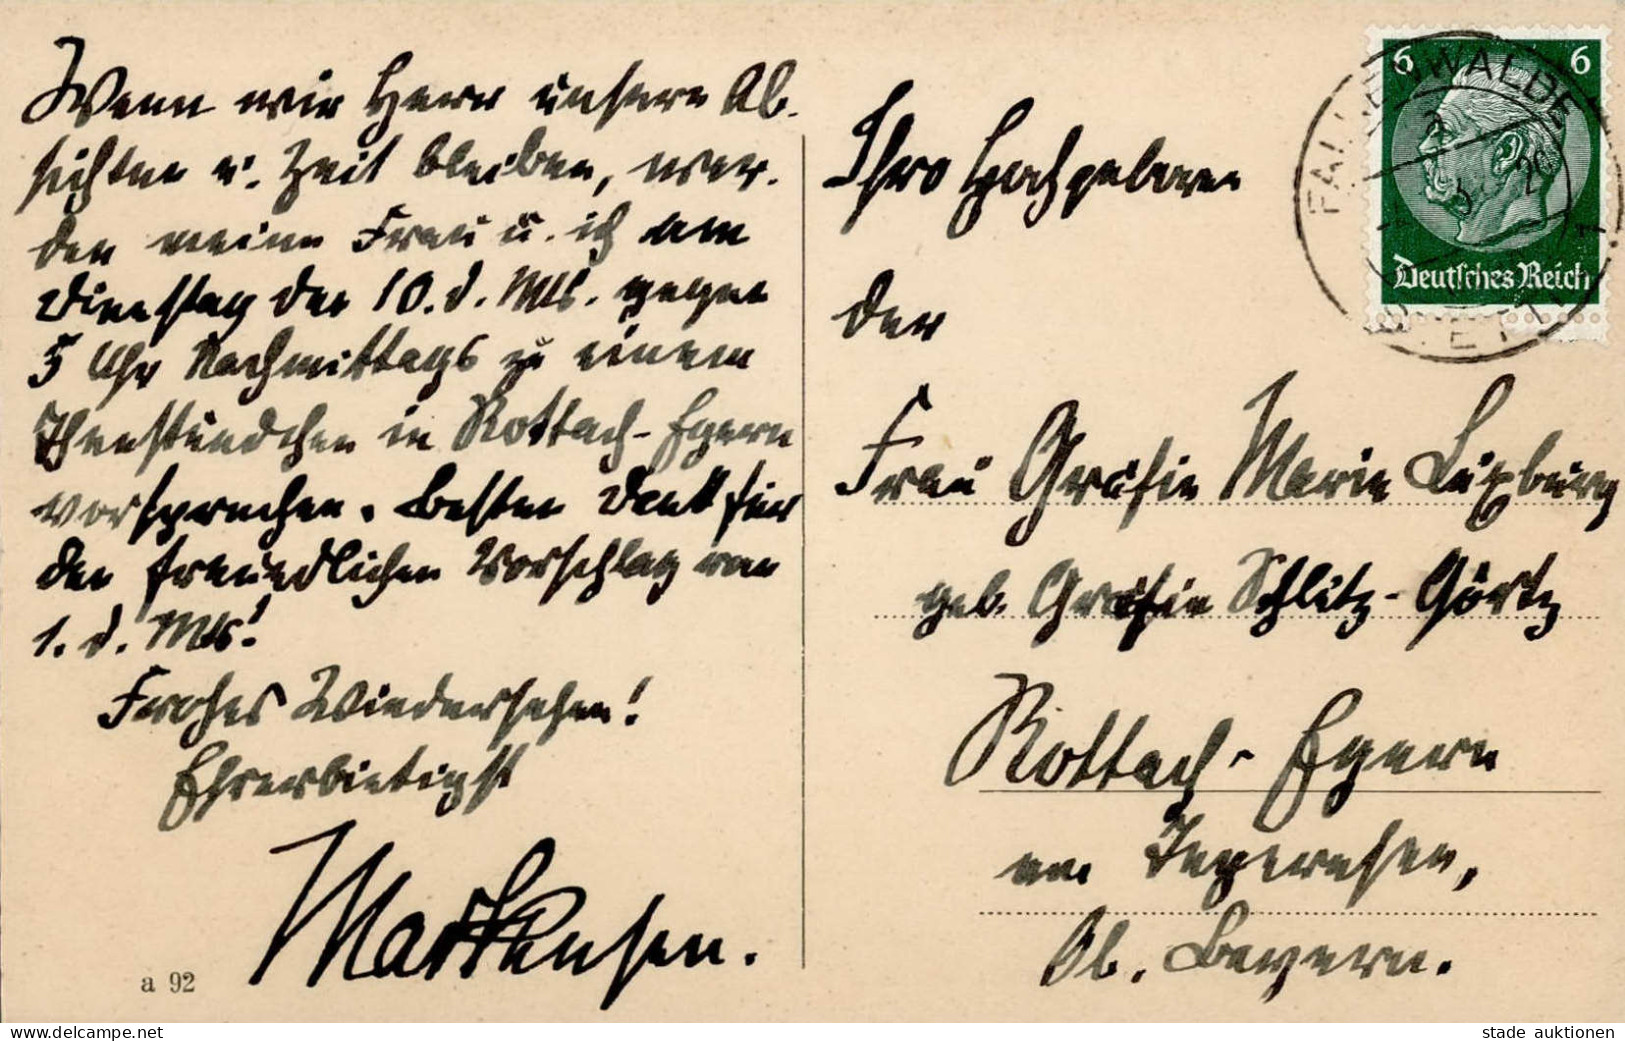 Wenn wir Herr unserer Ab-
sichten u. Zeit bleiben, wer-
den meine Frau u. ich am
Dienstag den 10. d. Mts. gegen
5 Uhr Nachmittags zu einem
Theestündchen in Rottach-Egern
vorsprechen. Besten Dank für
den freundlichen Vorschlag vom
1. d. Mts!
Frohes Wiedersehen!
Ehrerbietigst
Mackensen.
a 92
6 6
Deutsches Reich
FALKENWALDE
Ihro Hochgeboren
der
Frau Gräfin Marie Luxburg
geb. Gräfin Schlitz-Görtz
Rottach-Egern
am Tegernsee,
Ob. Bayern.
www.delcampe.net
stade auktionen